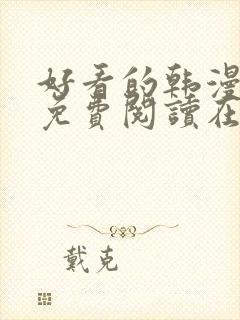 好看的韩漫
免費閱讀在
戴克